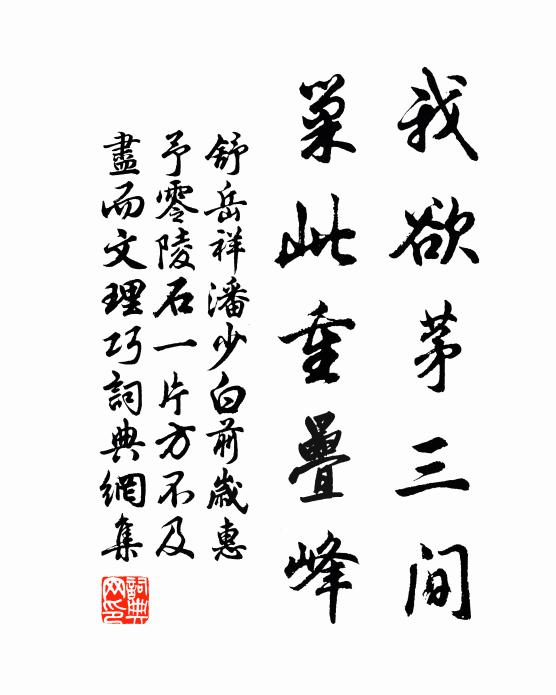 我欲茅三间
巢此重疊峰
舒岳祥潘少白前歲惠
予零陵石一片方不及
盡而文理巧詞典網集
詞典
网印